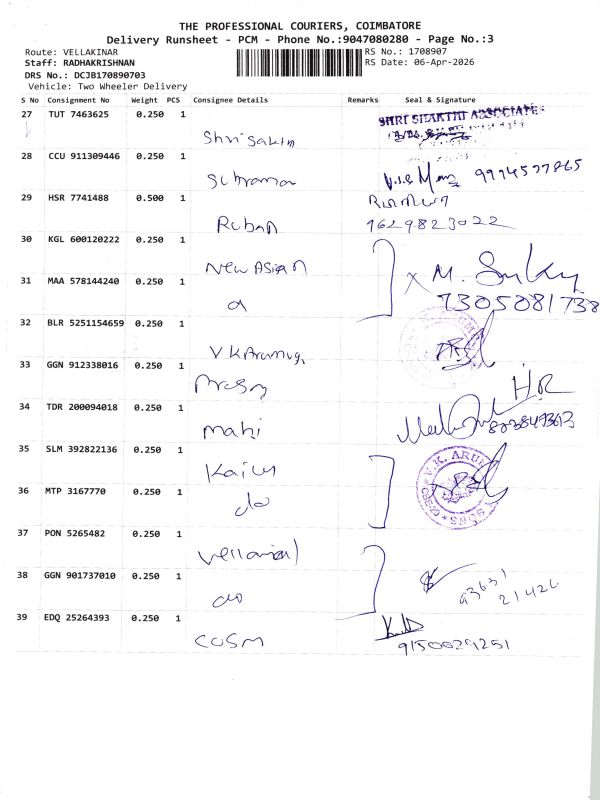 THE PROFESSIONAL COURIERS, COIMBATORE
Delivery Runsheet - PCM - Phone No.:9047080280 - Page No.:3
Route: VELLAKINAR
RS No.: 1708907
Staff: RADHAKRISHNAN
RS Date: 06-Apr-2026
DRS No.: DCJB170890703
Vehicle: Two Wheeler Delivery
S No Consignment No Weight PCS Consignee Details Remarks Seal & Signature
27 TUT 7463625 0.250 1
SHRI SHAKTHI ASSOCIATES
Shri Sakth
28 CCU 911309446 0.250 1
9994577865
29 HSR 7741488 0.500 1
Ruban
9629823022
30 KGL 600120222 0.250 1
New Asian
31 MAA 578144240 0.250 1
7305081738
32 BLR 5251154659 0.250 1
V K Arumug
33 GGN 912338016 0.250 1
HR
34 TDR 200094018 0.250 1
Mahi
35 SLM 392822136 0.250 1
V.K. ARUM
SONS
36 MTP 3167770 0.250 1
do
37 PON 5265482 0.250 1
38 GGN 901737010 0.250 1
do
39 EDQ 25264393 0.250 1
COSM